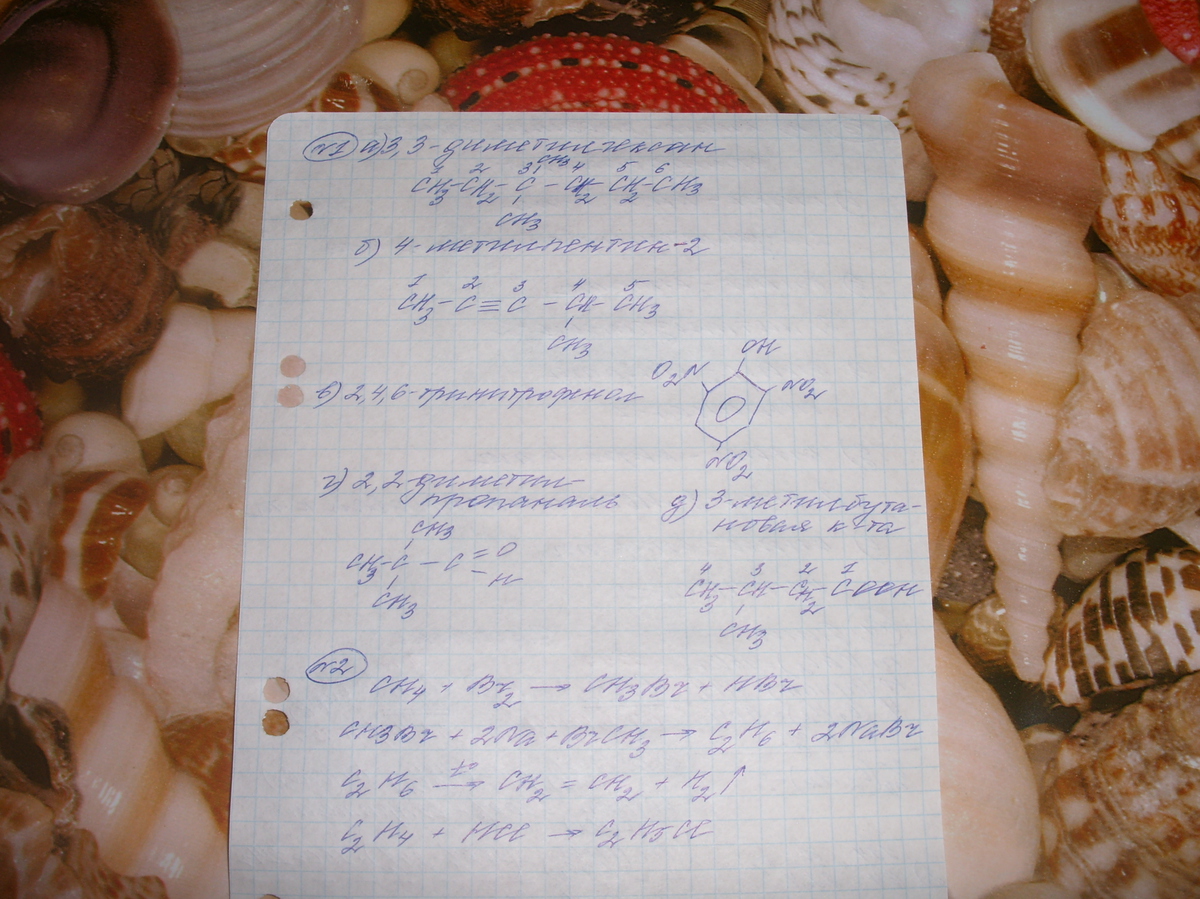 №1 а) 3,3-диметилгексан
CH3
1 2 3 4 5 6
CH3-CH2-C-CH2-CH2-CH3
CH3
б) 4-метилпентин-2
1 2 3 4 5
CH3-C≡C-CH-CH3
CH3
OH
O2N NO2
в) 2,4,6-тринитрофенол
NO2
г) 2,2-диметил-
пропаналь
CH3
CH3-C-C=O
-H
CH3
д) 3-метилбута-
новая к-та
4 3 2 1
CH3-CH-CH2-COOH
CH3
№2
CH4 + Br2 → CH3Br + HBr
CH3Br + 2Na + BrCH3 → C2H6 + 2NaBr
C2H6 t° → CH2=CH2 + H2↑
C2H4 + HCl → C2H5Cl